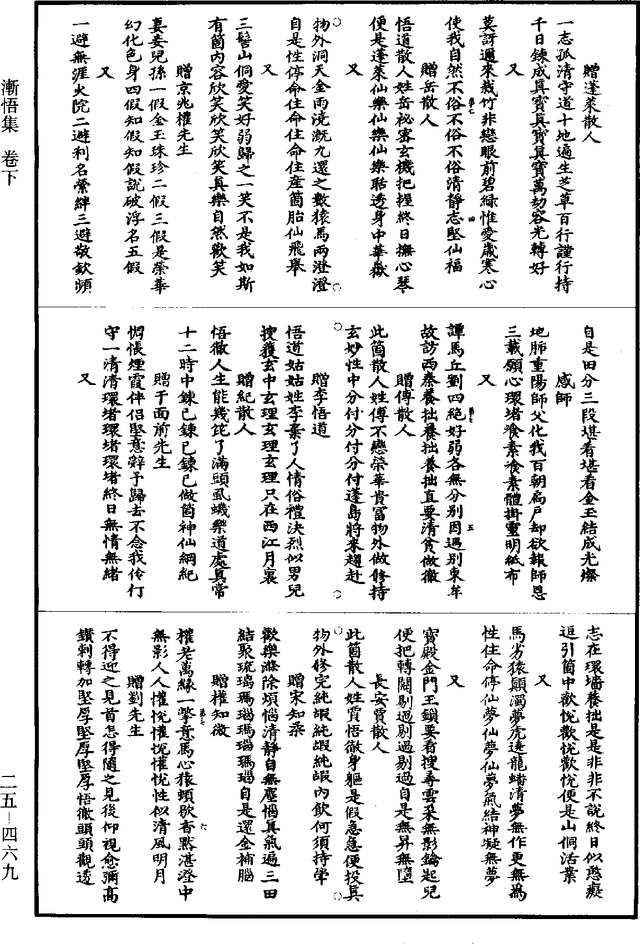 贈蓬萊散人
一志孤清守道十地遍生芝草百行謹行持
千日鍊成真寶真寶真寶萬劫容光轉好
又
莫訝邇來栽竹非戀眼前碧綠惟愛歲寒心
第七 四
使我自然不俗不俗不俗清靜志堅仙福
贈岳散人
悟道散人姓岳祕密玄機把捉終日撫心琴
便是蓬萊仙樂仙樂仙樂聒透身中華嶽
又
物外洞天金雨澆溉九還之數猿馬兩澄澄
自是性停命住命住命住產箇胎仙飛舉
又
三髻山侗愛笑好弱歸之一笑不是我如斯
有箇內容欣笑欣笑欣笑真樂自然歡笑
贈京兆權先生
妻妾兒孫一假金玉珠珍二假三假是榮華
幻化色身四假知假知假說破浮名五假
又
一避無涯火院二避利名縈絆三避敬欽頻
自是田分三段堪看堪看金玉結成光燦
感師
地肺重陽師父化我百朝扃戶却欲報師恩
三載願心環堵飡素飡素體掛靈明紙布
又
譚馬丘劉四絕好弱各無分別因遇別東牟
第七 五
故訪西秦養拙養拙養拙直要清貧做徹
贈傅散人
此箇散人姓傅不戀榮華貴富物外做修持
玄妙性中分付分付分付蓬島將來趨赴
贈李悟道
悟道姑姑姓李棄了人情俗禮決烈似男兒
搜獲玄中玄理玄理玄理只在西江月裏
贈紀散人
悟徹人生能幾了滿頭虱蟣樂道處真常
十二時中鍊己鍊己鍊己做箇神仙綱紀
贈于面前先生
惆悵煙霞伴侶堅意辭予歸去不念我伶仃
守一清清環堵環堵環堵終日無情無緒
又
志在環墻養拙是是非非不說終日似憨癡
逗引箇中歡悅歡悅歡悅便是山侗活業
又
馬劣猿顛濁夢虎遶龍蟠清夢無作更無為
性住命停仙夢仙夢仙夢氣結神凝無夢
又
寶殿金門玉鎖要看搜尋雲朵無影鑰起兒
便把轉關剔過剔過剔過自是無昇無墮
長安賈散人
此箇散人姓賈悟徹身軀是假急急便投真
物外修完純嘏純嘏純嘏內飲何須持斝
贈宋知柔
歡樂滌除煩惱清靜自無塵惱真氣過三田
結聚琉璃瑪瑙瑪瑙瑪瑙自是還金補腦
贈權知微
權老萬緣一擎意馬心猿頓歇杳默湛澄中
第七 六
無影人人懽悅懽悅懽悅性似清風明月
贈劉先生
不得迎之見首怎得隨之見後仰視愈彌高
鑽刺轉加堅厚堅厚堅厚悟徹頭頭觀透
漸悟集 卷下
二五—四六九